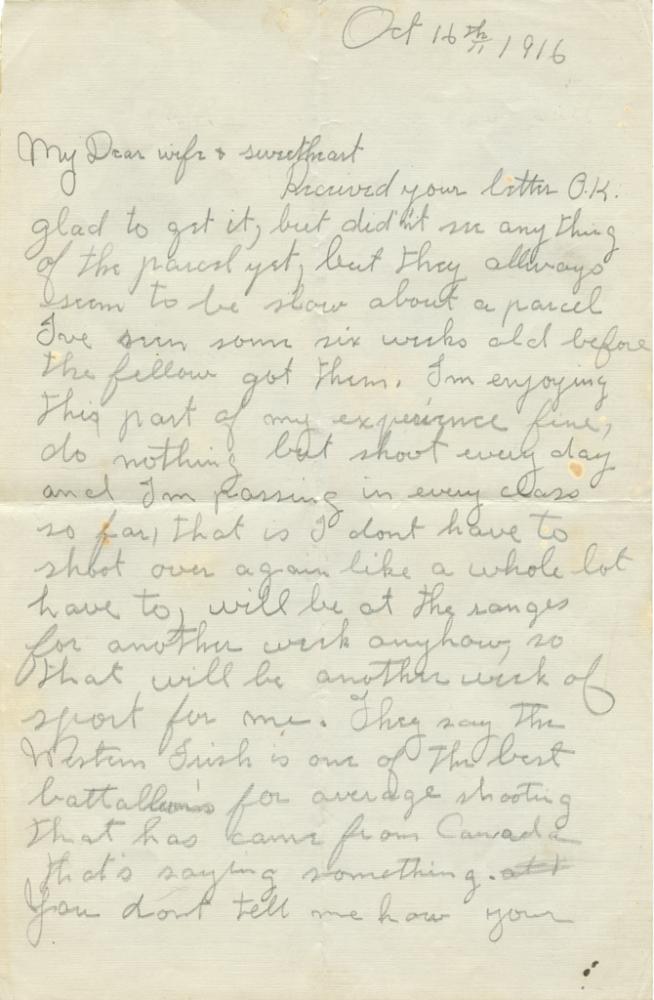 Oct 16th 1916
My Dear wife & sweetheart
Received your letter O.K.
glad to get it, but did'nt see any thing
of the parcel yet, but they allways
seem to be slow about a parcel
I've seen some six weeks old before
the fellow got them. I'm enjoying
this part of my experience fine,
do nothing but shoot every day
and I'm passing in every class
so far, that is I dont have to
shoot over again like a whole lot
have to, will be at the ranges
for another week anyhow, so
that will be another week of
sport for me. They say the
Western Irish is one of the best
battallion's for average shooting
that has came from Canada
that's saying something.
You dont tell me how your